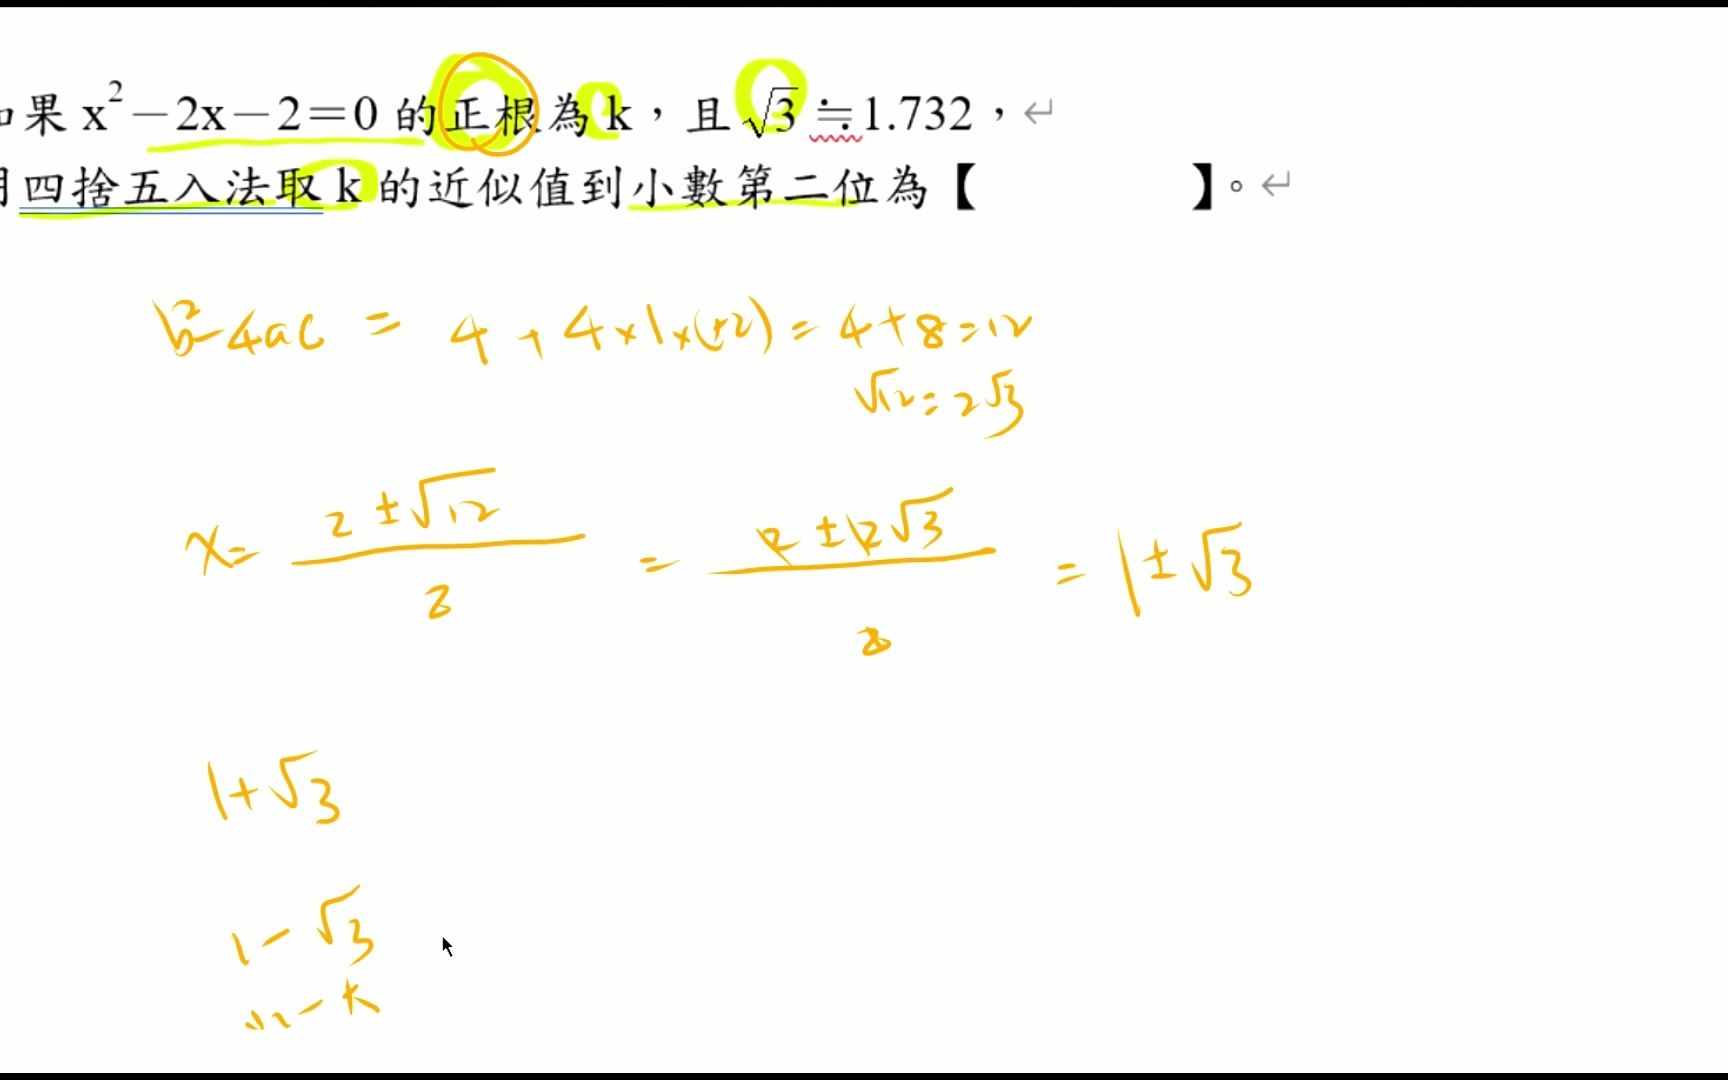 果 x²－2x－2＝0 的正根為 k，且 √3 ≒1.732，↵
四捨五入法取 k 的近似值到小數第二位為【 】。↵
b²-4ac = 4 + 4×1×(+2) = 4+8=12
√12=2√3
x= (2±√12)/2 = (2±2√3)/2 = 1±√3
1+√3
1-√3